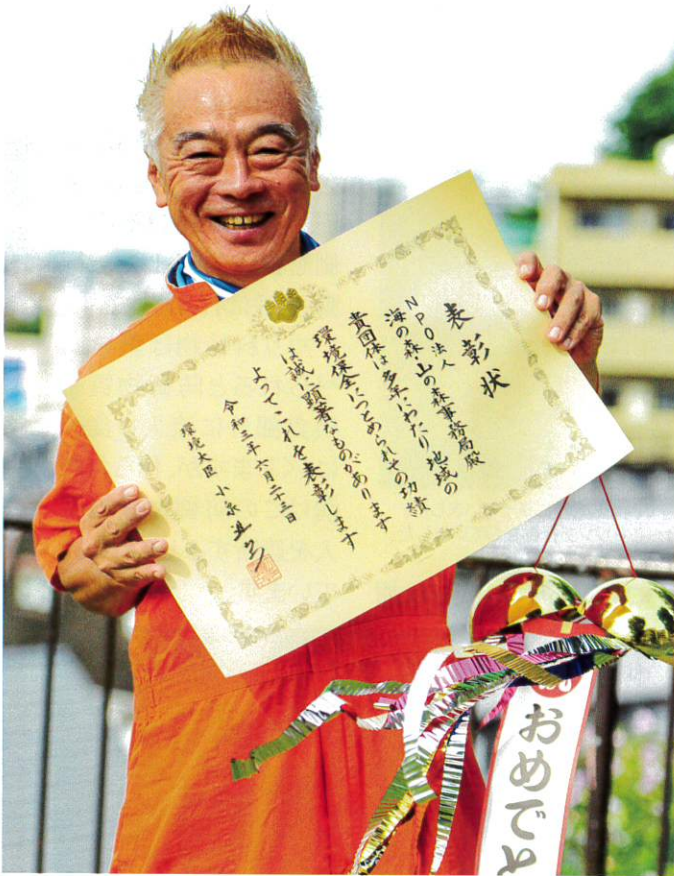 表彰状
NPO法人
海の森・山の森事務局殿
貴団体は多年にわたり地域の
環境保全につとめられその功績
は誠に顕著なものがあります
よってこれを表彰します
令和三年六月二十三日
環境大臣 小泉進次郎
祝
おめでと